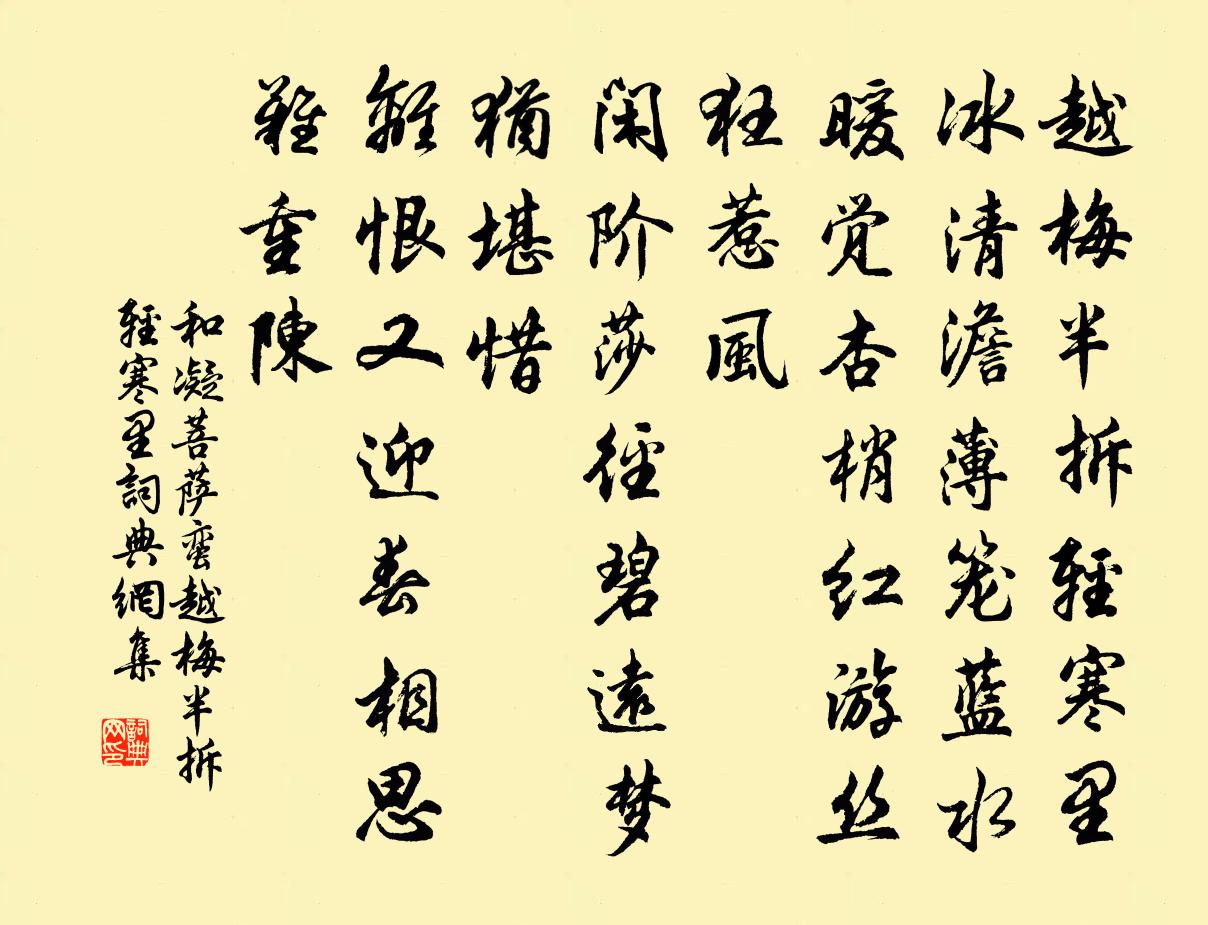 越梅半拆輕寒里
冰清澹薄笼蓝水
暖觉杏梢红游丝
狂惹風
闲阶莎径碧遠梦
猶堪惜
離恨又迎春相思
難重陳
和凝菩萨蛮越梅半拆
輕寒里詞典網集
詞典
网印